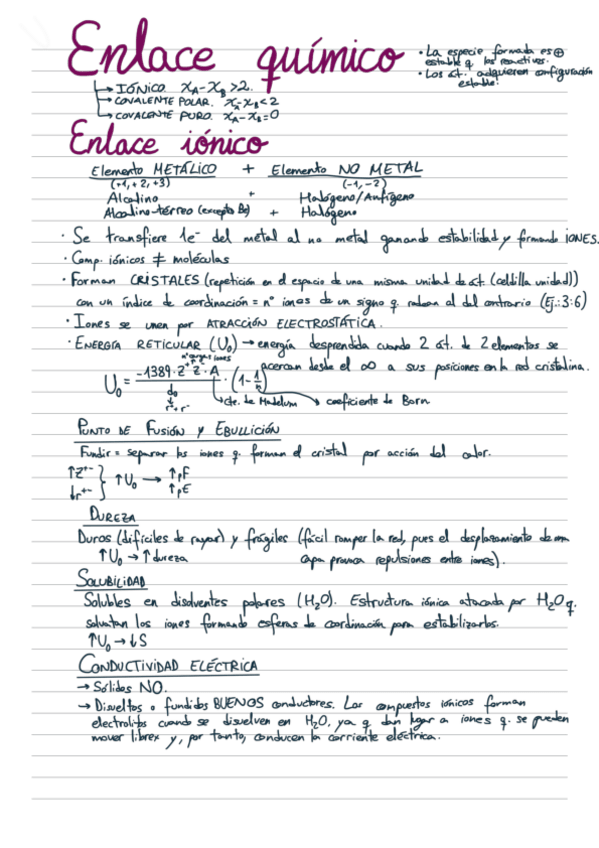 Enlace químico
· La especie formada es ⊕
estable q. los reactivos.
· Los át. adquieren configuración
estable.
→ IÓNICO. XA-XB >2.
→ COVALENTE POLAR. XA-XB<2
→ COVALENTE PURO. XA-XB=0
Enlace iónico
Elemento METÁLICO + Elemento NO METAL
(+1,+2,+3) (-1,-2)
Alcalino + Halógeno/Anfígeno
Alcalino-térreo (excepto Be) + Halógeno
· Se transfiere 1e⁻ del metal al no metal ganando estabilidad y formando IONES.
· Comp. iónicos ≠ moléculas
· Forman CRISTALES (repetición en el espacio de una misma unidad de át. (celdilla unidad))
con un índice de coordinación = nº iones de un signo q. rodean al del contrario (Ej.: 3:6)
· Iones se unen por ATRACCIÓN ELECTROSTÁTICA.
· ENERGÍA RETICULAR (U₀) → energía desprendida cuando 2 át. de 2 elementos se
acercan desde el ∞ a sus posiciones en la red cristalina.
nº cargas iones
U₀ = -1389·Z⁺·Z⁻·A / d₀ · (1-1/n)
r⁺+r⁻
cte. de Madelum
coeficiente de Born
PUNTO DE FUSIÓN Y EBULLICIÓN
Fundir = separar los iones q. forman el cristal por acción del calor.
↑Z⁺⁻ } ↑U₀ → ↑pF
↓r⁺⁻ ↑pE
DUREZA
Duros (difíciles de rayar) y frágiles (fácil romper la red, pues el desplazamiento de una
↑U₀ → ↑dureza capa provoca repulsiones entre iones).
SOLUBILIDAD
Solubles en disolventes polares (H₂O). Estructura iónica atacada por H₂O q.
solvatan los iones formando esferas de coordinación para estabilizarlos.
↑U₀ → ↓S
CONDUCTIVIDAD ELÉCTRICA
→ Sólidos NO.
→ Disueltos o fundidos BUENOS conductores. Los compuestos iónicos forman
electrolitos cuando se disuelven en H₂O, ya q dan lugar a iones q. se pueden
mover librex y, por tanto, conducen la corriente eléctrica.